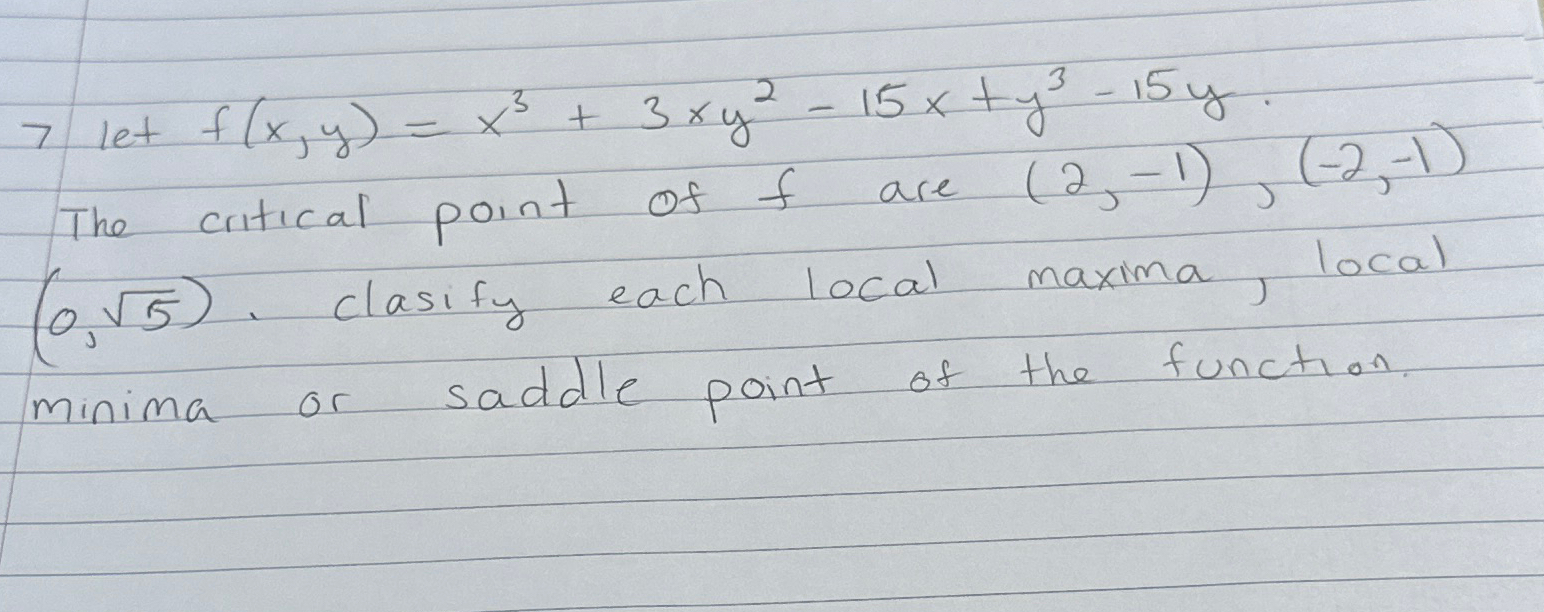 7 let f(x,y) = x³ + 3xy² - 15x + y³ - 15y.
The critical point of f are (2,-1), (-2,-1)
(0,√5). clasify each local maxima, local
minima or saddle point of the function.